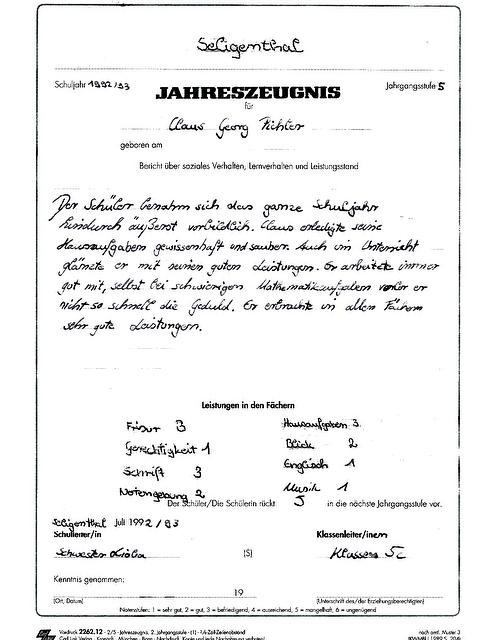 Seligenthal
Schuljahr 1992/93
JAHRESZEUGNIS
Jahrgangsstufe 5
für
Claus Georg Pichler
geboren am
Bericht über soziales Verhalten, Lernverhalten und Leistungsstand
Der Schüler benahm sich das ganze Schuljahr
hindurch äußerst vorbildlich. Claus erledigte seine
Hausaufgaben gewissenhaft und sauber. Auch im Unterricht
glänzte er mit seinen guten Leistungen. Er arbeitete immer
gut mit, selbst bei schwierigen Mathematikaufgaben verlor er
nicht so schnell die Geduld. Er erbrachte in allen Fächern
sehr gute Leistungen.
Leistungen in den Fächern
Frisur 3 Hausaufgaben 3
Gerechtigkeit 1 Blick 2
Schrift 3 Englisch 1
Notengebung 2 Musik 1
Der Schüler/Die Schülerin rückt in die nächste Jahrgangsstufe vor.
Seligenthal Juli 1992/93
Schulleiter/in Klassenleiter/in
Schwester (S) Klasse 5c
Kenntnis genommen:
19
(Ort, Datum) (Unterschrift des/der Erziehungsberechtigten)
Notenstufen: 1 = sehr gut, 2 = gut, 3 = befriedigend, 4 = ausreichend, 5 = mangelhaft, 6 = ungenügend
Vordruck 2262.12 - 2/5 - Jahreszeugnis, 2. Jahrgangsstufe